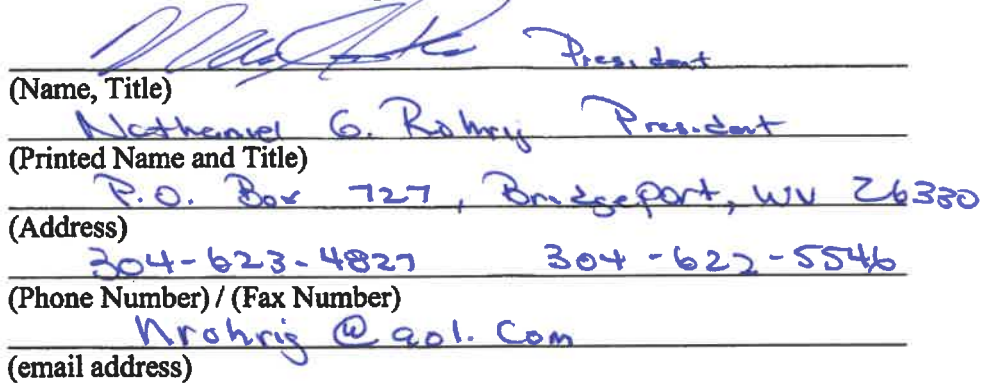 President
(Name, Title)
Nathaniel G. Rohrig President
(Printed Name and Title)
P.O. Box 727, Bridgeport, WV 26330
(Address)
304-623-4827 304-622-5546
(Phone Number) / (Fax Number)
Nrohrig @ aol. Com
(email address)